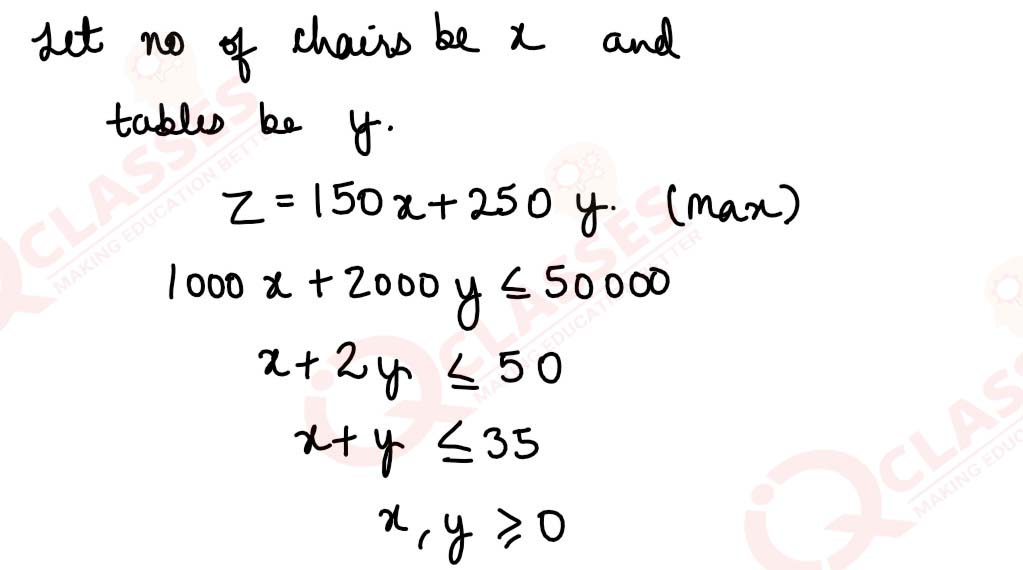 Let no of chairs be x and
tables be y.
Z = 150x + 250 y. (Max)
1000 x + 2000 y ≤ 50000
x + 2y ≤ 50
x + y ≤ 35
x, y ≥ 0
iQ CLASSES
MAKING EDUCATION BETTER
iQ CLASSES
MAKING EDUCATION BETTER
iQ CLASSES
MAKING EDUC